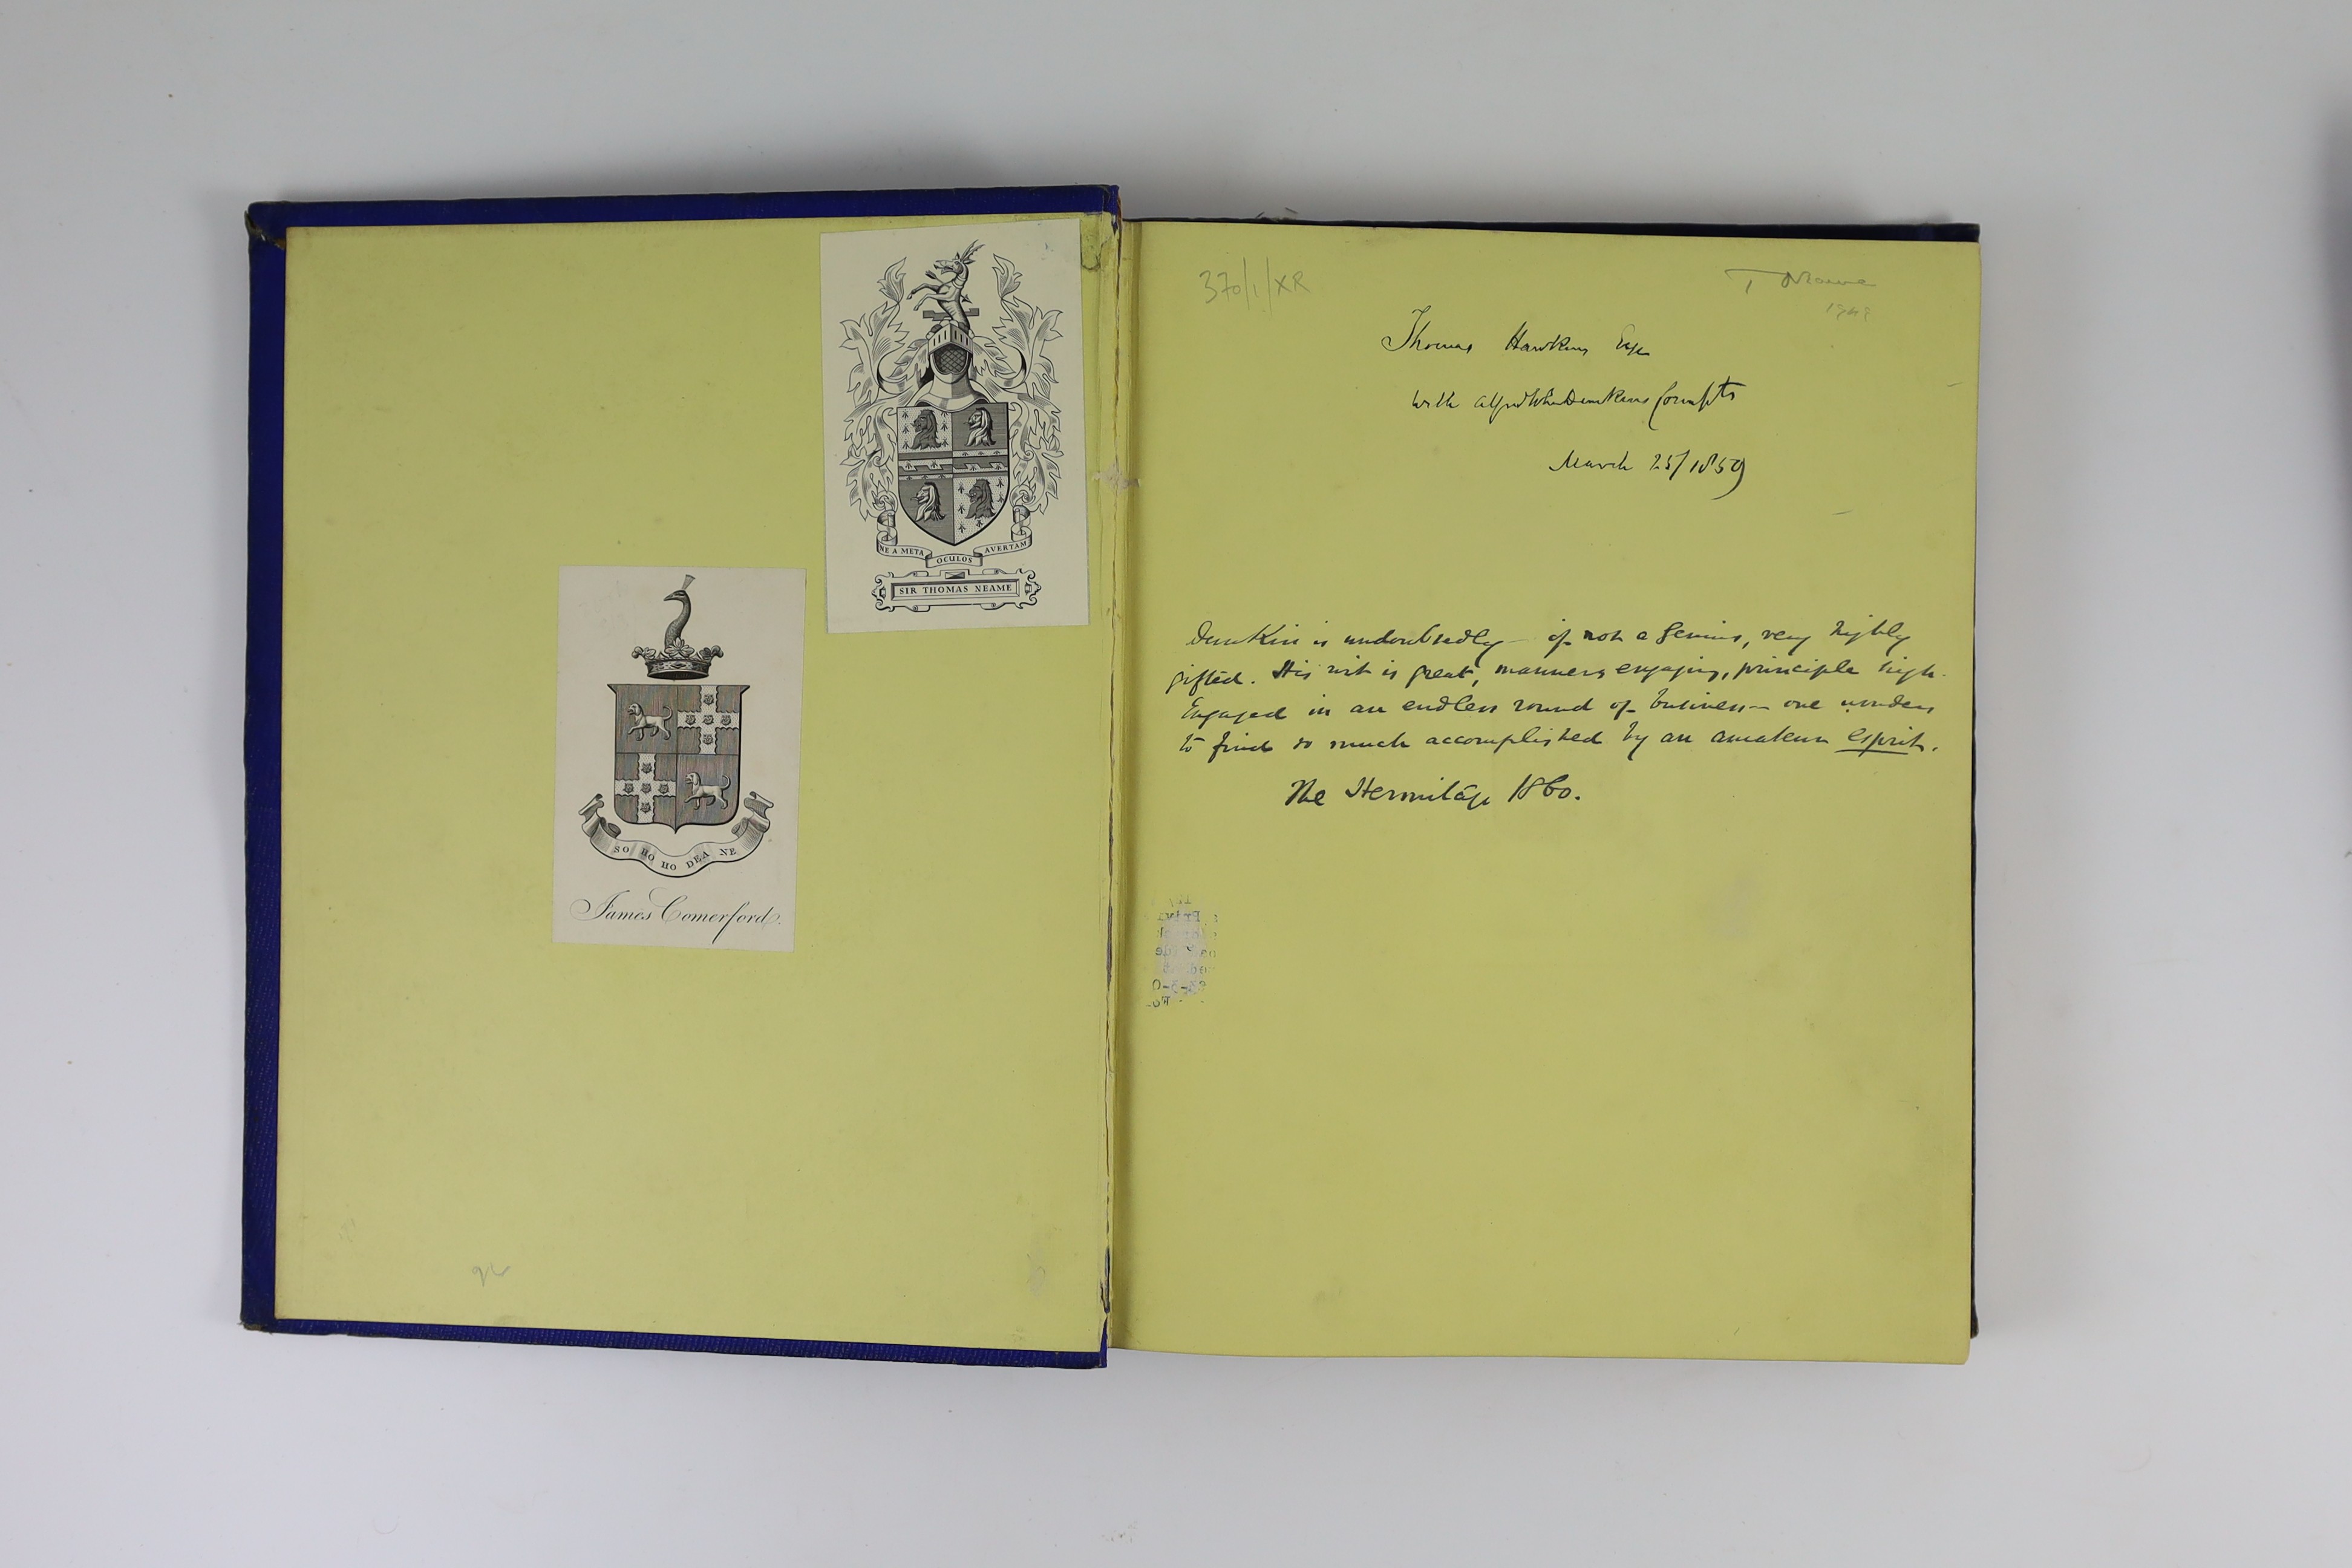 NE A META OCULOS AVERTAM
SIR THOMAS NEAME
SO HO HO DEA NE
James Comerford.
370/1/XR
T Neame
Thomas Hawkins Esqr
With Alfred Dunkins Compts
March 25/1859
Dunkin is undoubtedly - if not a genius, very highly
gifted. His wit is great, manners engaging, principle high.
Engaged in an endless round of business - one wonders
to find so much accomplished by an amateur esprit.
The Hermitage 1860.